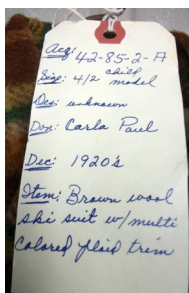 Acq: 42-85-2-A
Size: 4/2 child model
Des: unknown
Don: Carla Paul
Dec: 1920's
Item: Brown wool
ski suit w/multi
colored plaid trim